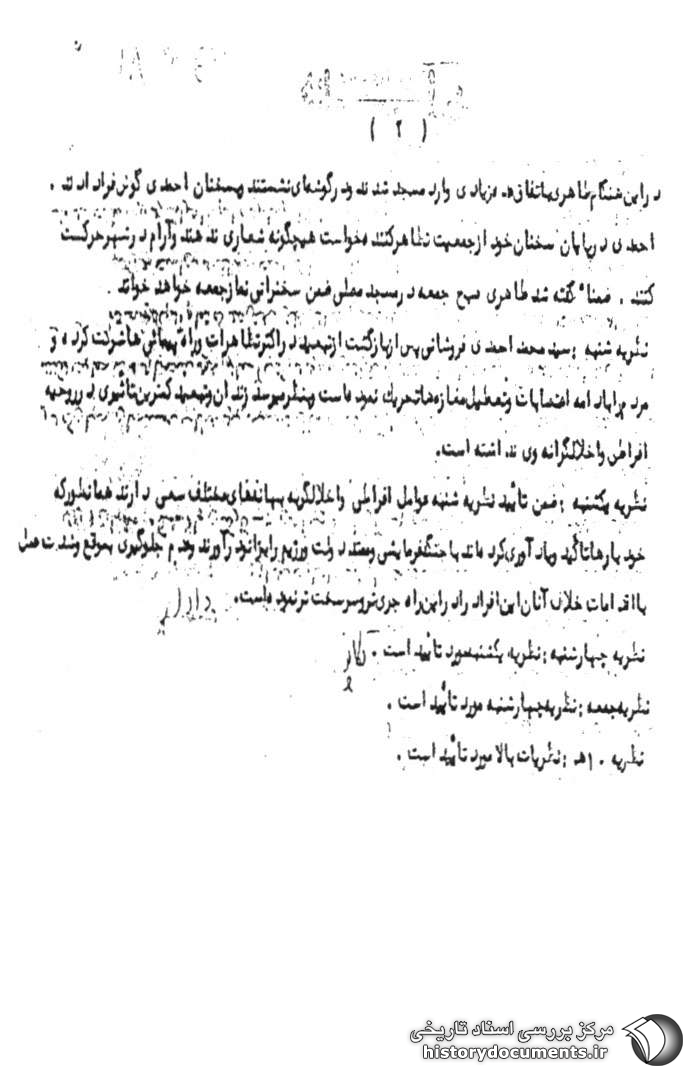 ( ۲ )
در این هنگام طاهری باتفاق عده زیادی وارد مسجد شدند و در گوشه‌ای نشستند و بسخنان احمدی گوش فرا دادند .
احمدی در پایان سخنان خود از جمعیت تظاهرکننده خواست هیچگونه شعاری ندهند و آرام در شهر حرکت
کنند . ضمنا گفته شد طاهری صبح جمعه در مسجد مصلی ضمن سخنرانی نماز جمعه خواهد خواند .
نظریه شنبه : سید محمد احمدی فروشانی پس از بازگشت از تبعید در اکثر تظاهرات و راه پیمائی ها شرکت کرده و
مردم را بادامه اعتصابات و تعطیل مغازه‌ها تحریک نموده است و بنظر میرسد زندان و تبعید کمترین تاثیری در روحیه
افراطی و اخلالگرانه وی نداشته است.
نظریه یکشنبه : ضمن تائید نظریه شنبه عوامل افراطی و اخلالگر به بهانه‌های مختلف سعی دارند همانطور که
خود بارها تاکید و یادآوری کرده‌اند با جنگ فرسایشی و ممتد دولت و رژیم را بزانو درآورند و عدم جلوگیری بموقع و شدت عمل
با اقدامات خلاف آنان این افراد را در این راه جری‌تر و سرسخت‌تر نموده است.
نظریه چهارشنبه : نظریه یکشنبه مورد تائید است .
نظریه جمعه : نظریه چهارشنبه مورد تائید است .
نظریه ۱۰ ه‍ : نظریات بالا مورد تائید است .
مرکز بررسی اسناد تاریخی
historydocuments.ir